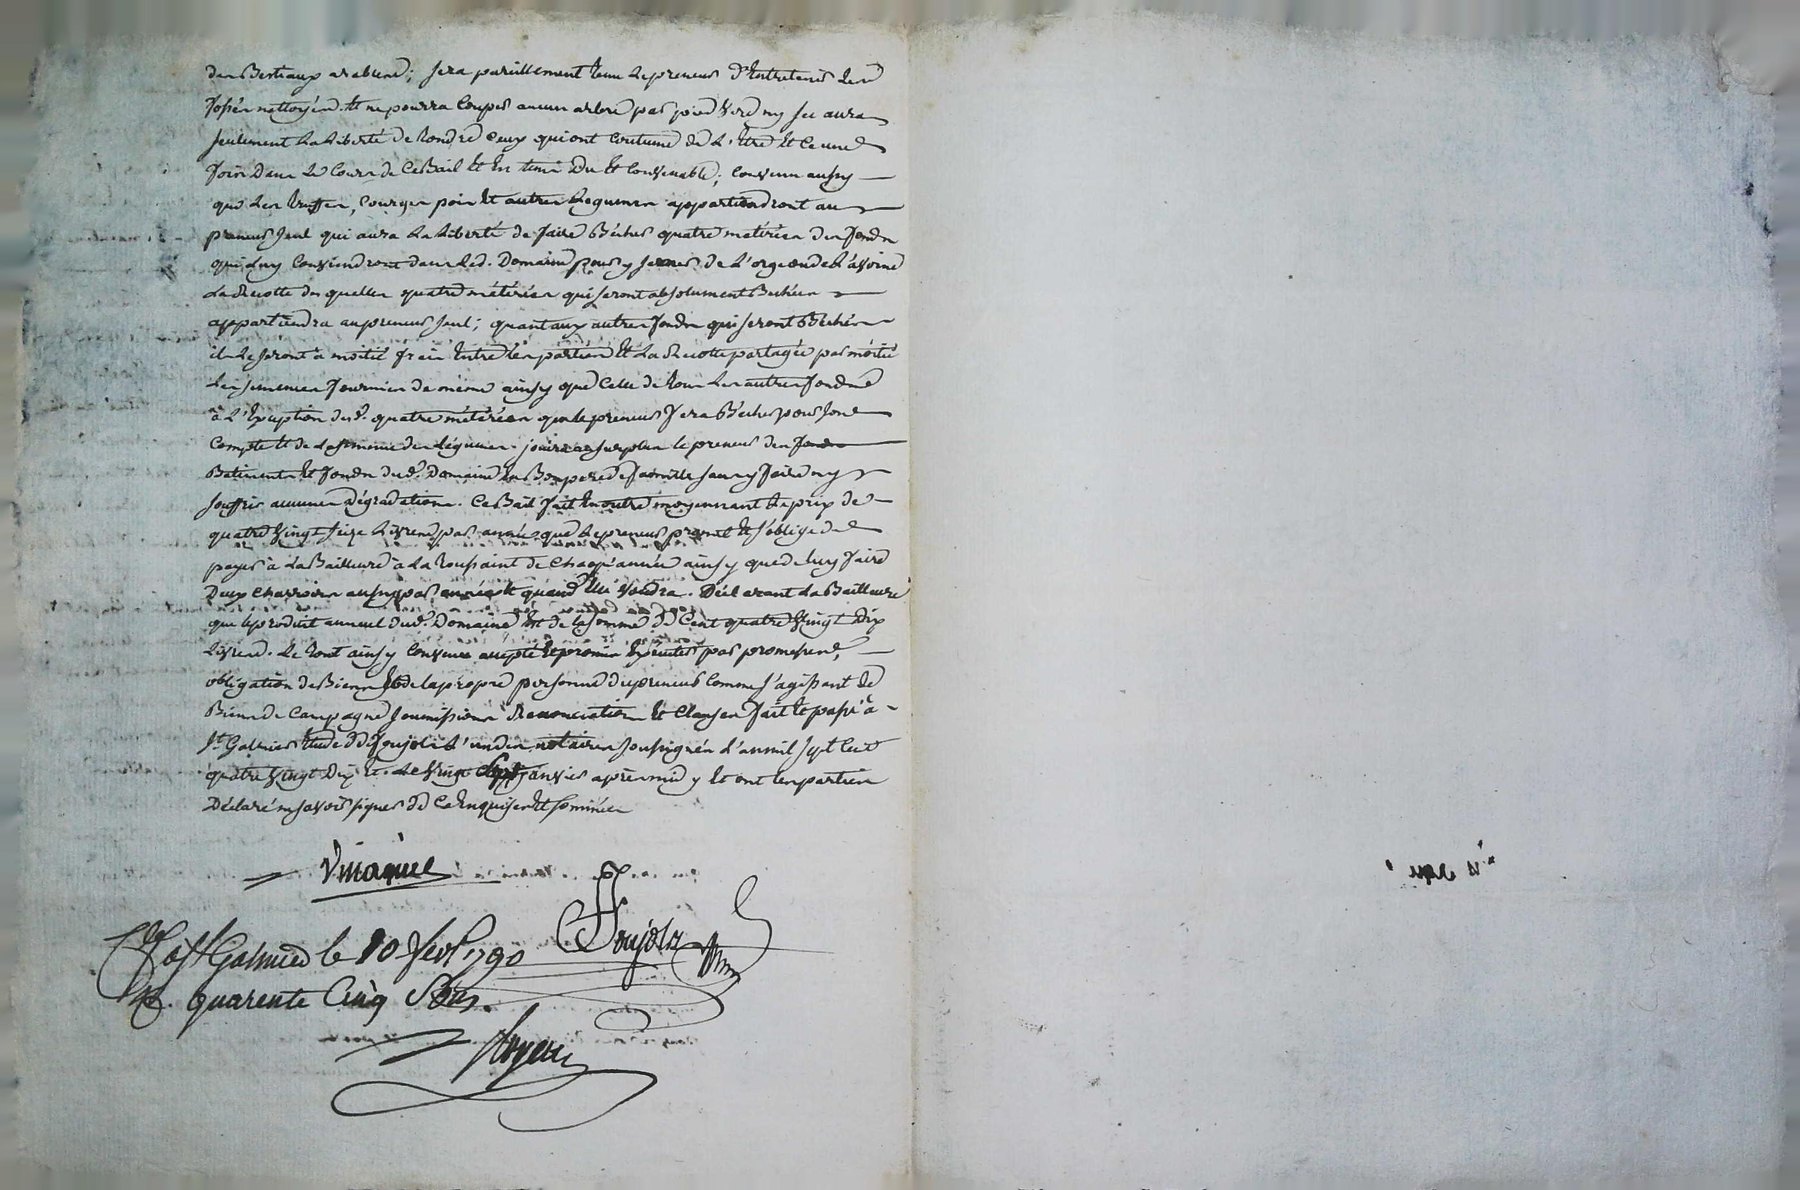 des Bestiaux arables; sera pareillement tenu le preneur d'Entretenir les
fossés nettoyés. Et ne pourra Couper aucun arbre par pied verd ny sec aura
seulement la liberté de tondre Ceux qui ont Coutume de L'Etre Et Ce une
fois Dans le Cours de Ce Bail Et En tems Du Et Convenable; Convenu aussy
que les truffes, Courges pois Et autres Legumes appartiendront au
preneur seul qui aura la liberté de faire Bêcher quatre métérées des fonds
qui luy Conviendront dans led. Domaine pour y semer de L'orge ou de L'avoine
La Recotte des quelles quatre métérées qui seront absolument Bechées
appartiendra au preneur seul; quant aux autres fonds qui seront Bêchés
ils Le seront à moitié frais Entre les parties Et La Recotte partagée par moitié
Les semences fournies de même ainsy que Celles de tous Les autres fonds
à L'Exception desd. quatre métérées que le preneur fera Bêcher pour son
Compte Et de la semence des légumes. jouira au surplus le preneur des fonds
Batiments Et fonds dud. Domaine En Bon pere de famille sans y faire ny
souffrir aucunes dégradations. Ce Bail fait En outre moyennant Le prix de
quatre vingt seize Livres par année que Le preneur promet Et s'oblige de
payer à La Bailleure à La Toussaint de Chaqu'année ainsy que de luy faire
Deux Charrois aussy par année Et quand Elle voudra. Déclarant La Bailleure
que le produit annuel dud. Domaine Est de la somme de Cent quatre Vingt Dix
Livres. Le tout ainsy Convenu accepté Et promis Exécuter par promesses,
obligation de Biens Et de la propre personne du preneur Comme s'agissant de
Biens de Campagne soumissions Renonciations Et Clauses fait Et passé à
St. Galmier Etude de Poujols L'un des notaires soussignés L'an mil sept Cent
quatre Vingt Dix Et Le Vingt Sept janvier après midy Et ont les parties
Déclaré ne savoir signer de Ce Enquises Et sommées
Contlé à St Galmier le 10 fevr. 1790
R. quarente Cinq Sous.